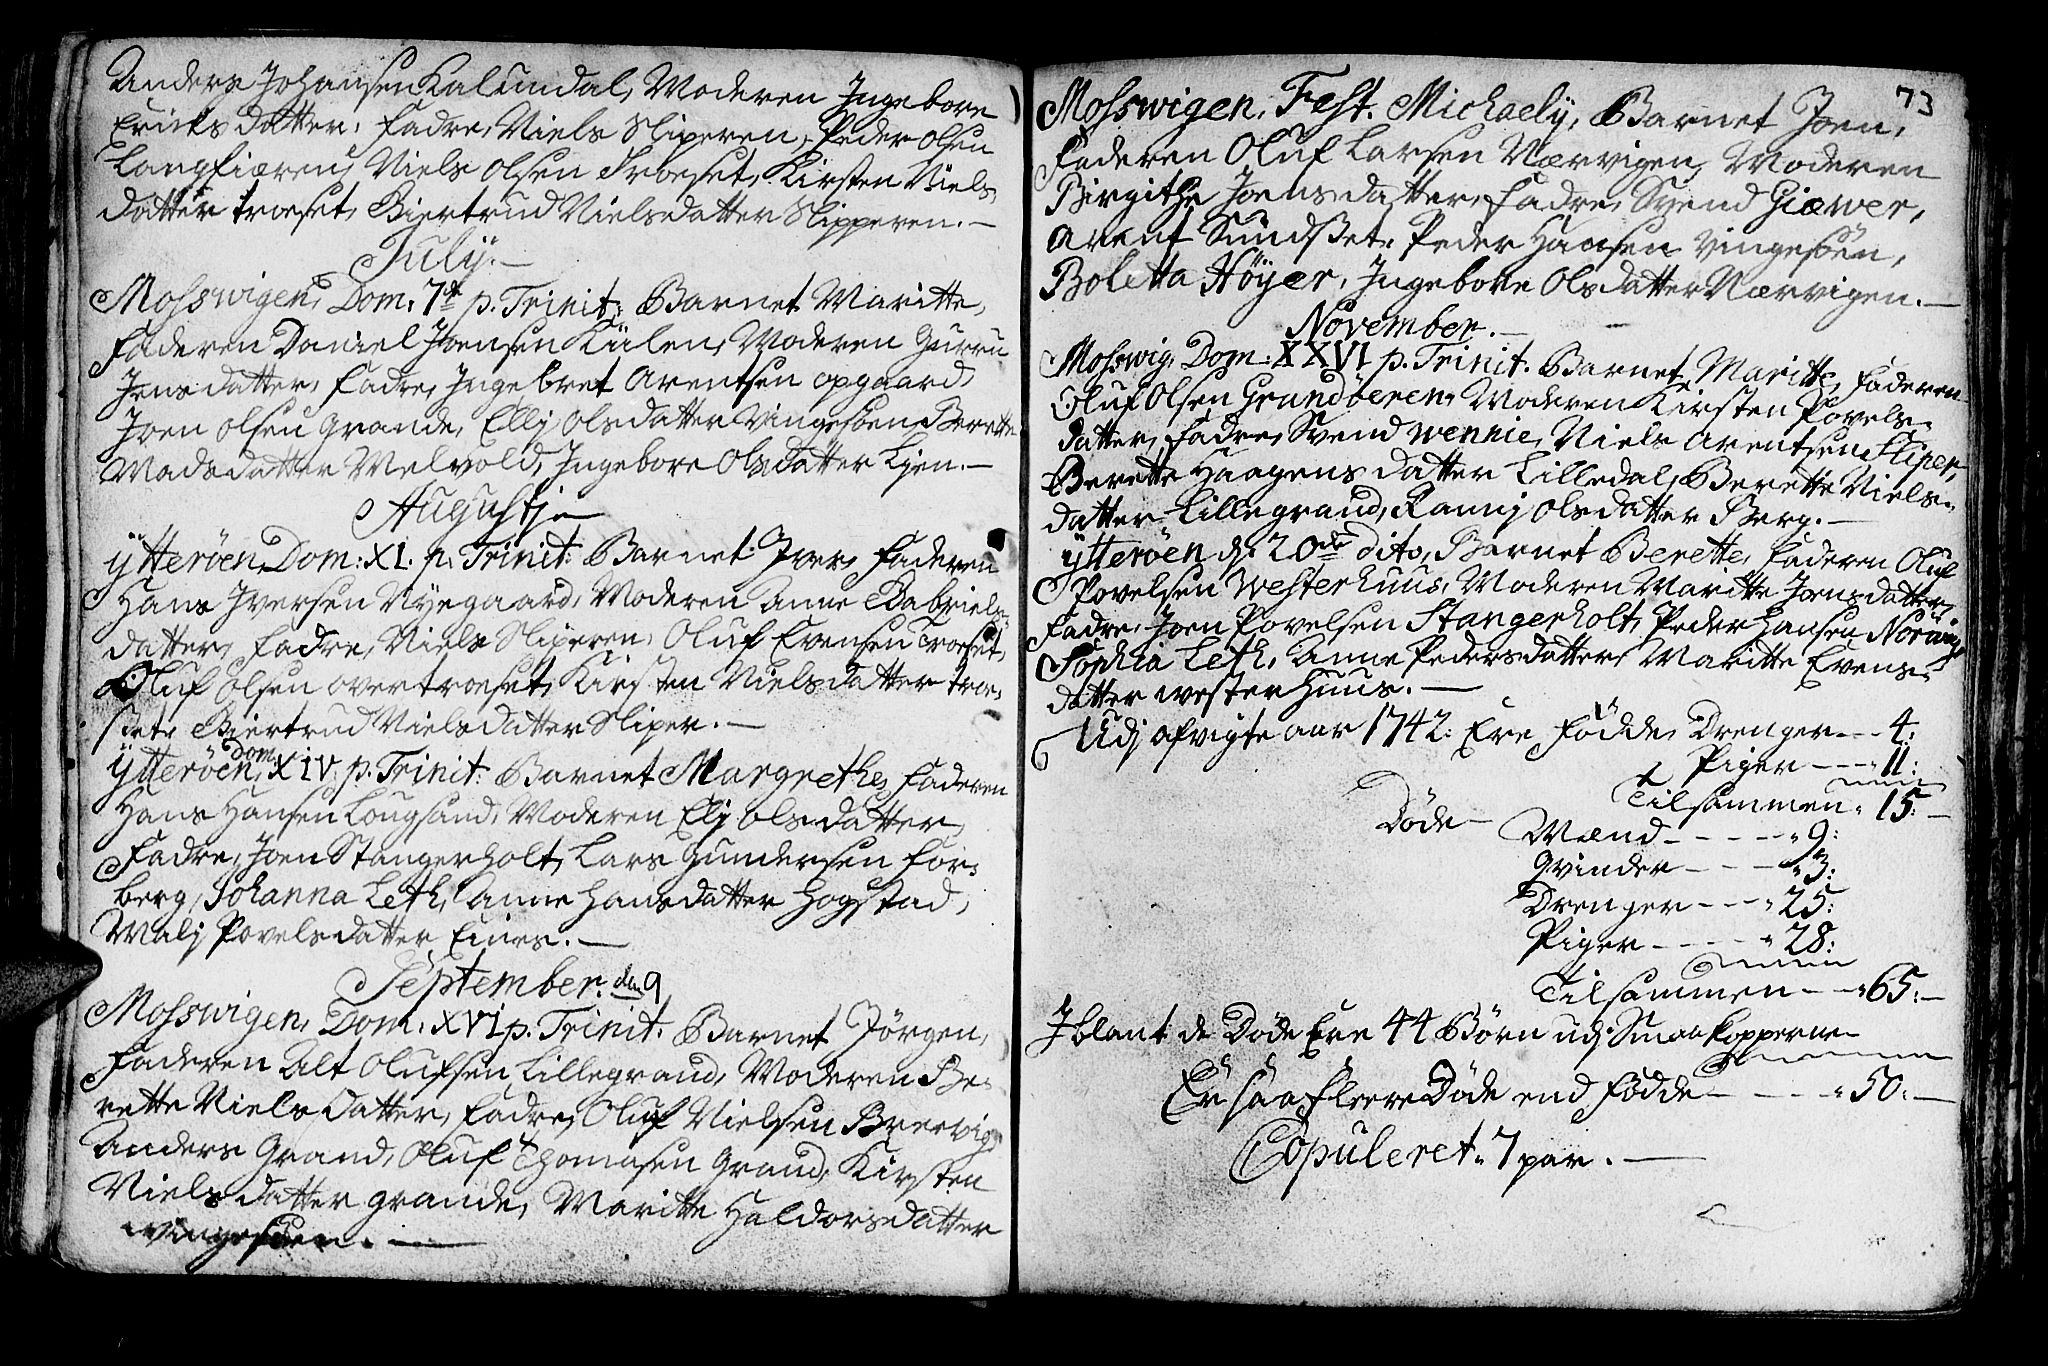 Anders Johansen Kalundal, Moderen Ingebore
Ericks datter, Fadre, Niels Sliperen, Peder Olsen
Langfiæren, Niels Olsen Troeset, Kirsten Niels
datter troeset, Giertrud Nielsdatter Slipperen. —
July. —
Mosswigen, Dom: 7de p. Trinit: Barnet Maritte,
Faderen Daniel Joensen Külen, Moderen Gurru
Jensdatter, Fadre, Ingebret Arentsen opgaard,
Joen Olsen Grande, Ellj Olsdatter Vingesöen Berette
Madsdatter Melvold, Ingebore Olsdatter Lyen. —
Augustj —
ÿtteröen, Dom: XI. p. Trinit: Barnet Iver, Faderen
Hans Iversen Nÿegaard, Moderen Anne Gabriels
datter, Fadre, Niels Sliperen, Oluf Evensen Troeset,
Oluf Olsen overtroeset, Kirsten Nielsdatter troe-
set, Giertrud Nielsdatter Sliper. —
Dom:
Ÿtteröen, XIV. p. Trinit: Barnet Margrethe, Faderen
Hans Hansen Lougsand, Moderen Elj Olsdatter,
Fadre, Joen Stangerholt, Lars Gundersen For-
berg, Johanna Leth, Anne Hansdatter Hogstad,
Malj Povelsdatter Eines. —
September. den 9
Mosswigen, Dom: XVI p. Trinit: Barnet Jörgen,
Faderen Alt Olufsen Lillegrand, Moderen Be-
rette Nielsdatter, Fadre, Oluf Nielsen Breevig
Anders Grand, Oluf Thomasen Grand, Kirsten
Nielsdatter grande, Maritte Haldorsdatter
vingesöen. —
73
Mosswigen, Fest. Michaelÿ, Barnet Joen,
Faderen Oluf Larsen Nærvigen, Moderen
Birgithe Joensdatter, Fadre, Svend Giæwer,
Arent Sundset, Peder Hansen Vingesöen,
Boletta Höÿer, Ingebore Olsdatter Nærvigen. —
November. —
Mosswig, Dom: XXVI p. Trinit. Barnet Maritte, Faderen
Oluf Olsen Grundöeren, Moderen Kirsten Povels-
datter, Fadre, Svend Wennie, Niels Arentsen Sliper,
Berette Haagensdatter Lilledal, Berette Niels-
datter Lillegrand, Rannj Olsdatter Berg. —
ÿtteröen d. 20de dito, Barnet Berette, Faderen Oluf
Povelsen Westerhuus, Moderen Maritte Joensdatter,
Fadre, Joen Povelsen Stangerholt, Peder Hansen Norwig
Sophia Leth, Anne Pedersdatter, Maritte Evens-
datter westerhuus. —
Udj afvigte aar 1742: Ere Födde, Drenger --- 4:
Piger ---- 11:
Tilsammen, 15: —
Döde — Mænd ----- 9:
Qvinder ---- 3:
Drenger --- 25:
Piger ----- 28:
Tilsammen -- 65: —
Iblant de Döde Ere 44 Börn udj Smaakopperne
Er saa fleere Döde end födde ---- 50: —
Copuleret 7 par. —